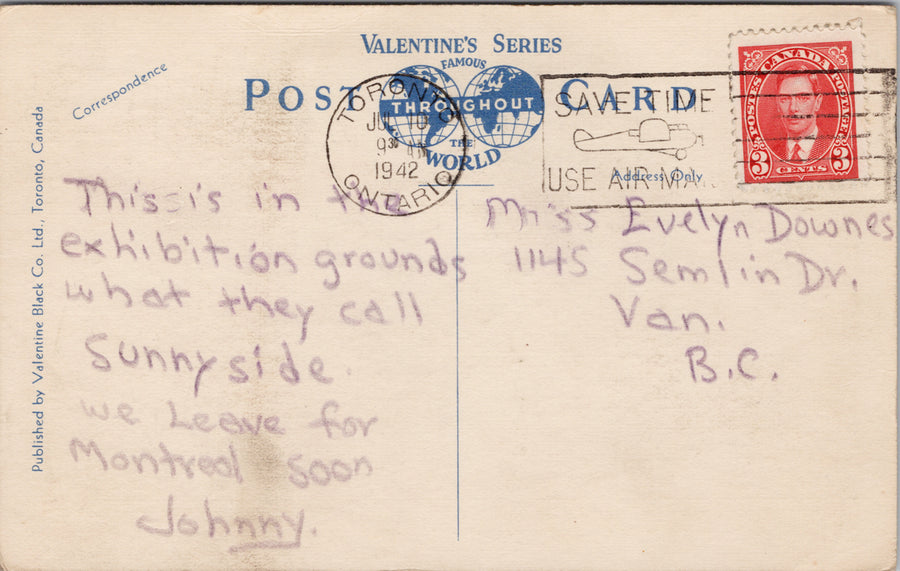 VALENTINE'S SERIES
FAMOUS
POST CARD
THROUGHOUT
THE
WORLD
Correspondence
Address Only
Published by Valentine Black Co. Ltd., Toronto, Canada
TORONTO
JUL 10
9³⁰
1942
ONTARIO
SAVE TIME
USE AIR MA
CANADA
POSTES POSTAGE
3 CENTS 3
This is in the
exhibition grounds
what they call
Sunnyside.
we Leave for
Montreal soon
Johnny.
Miss Evelyn Downes
1145 Semlin Dr.
Van.
B.C.